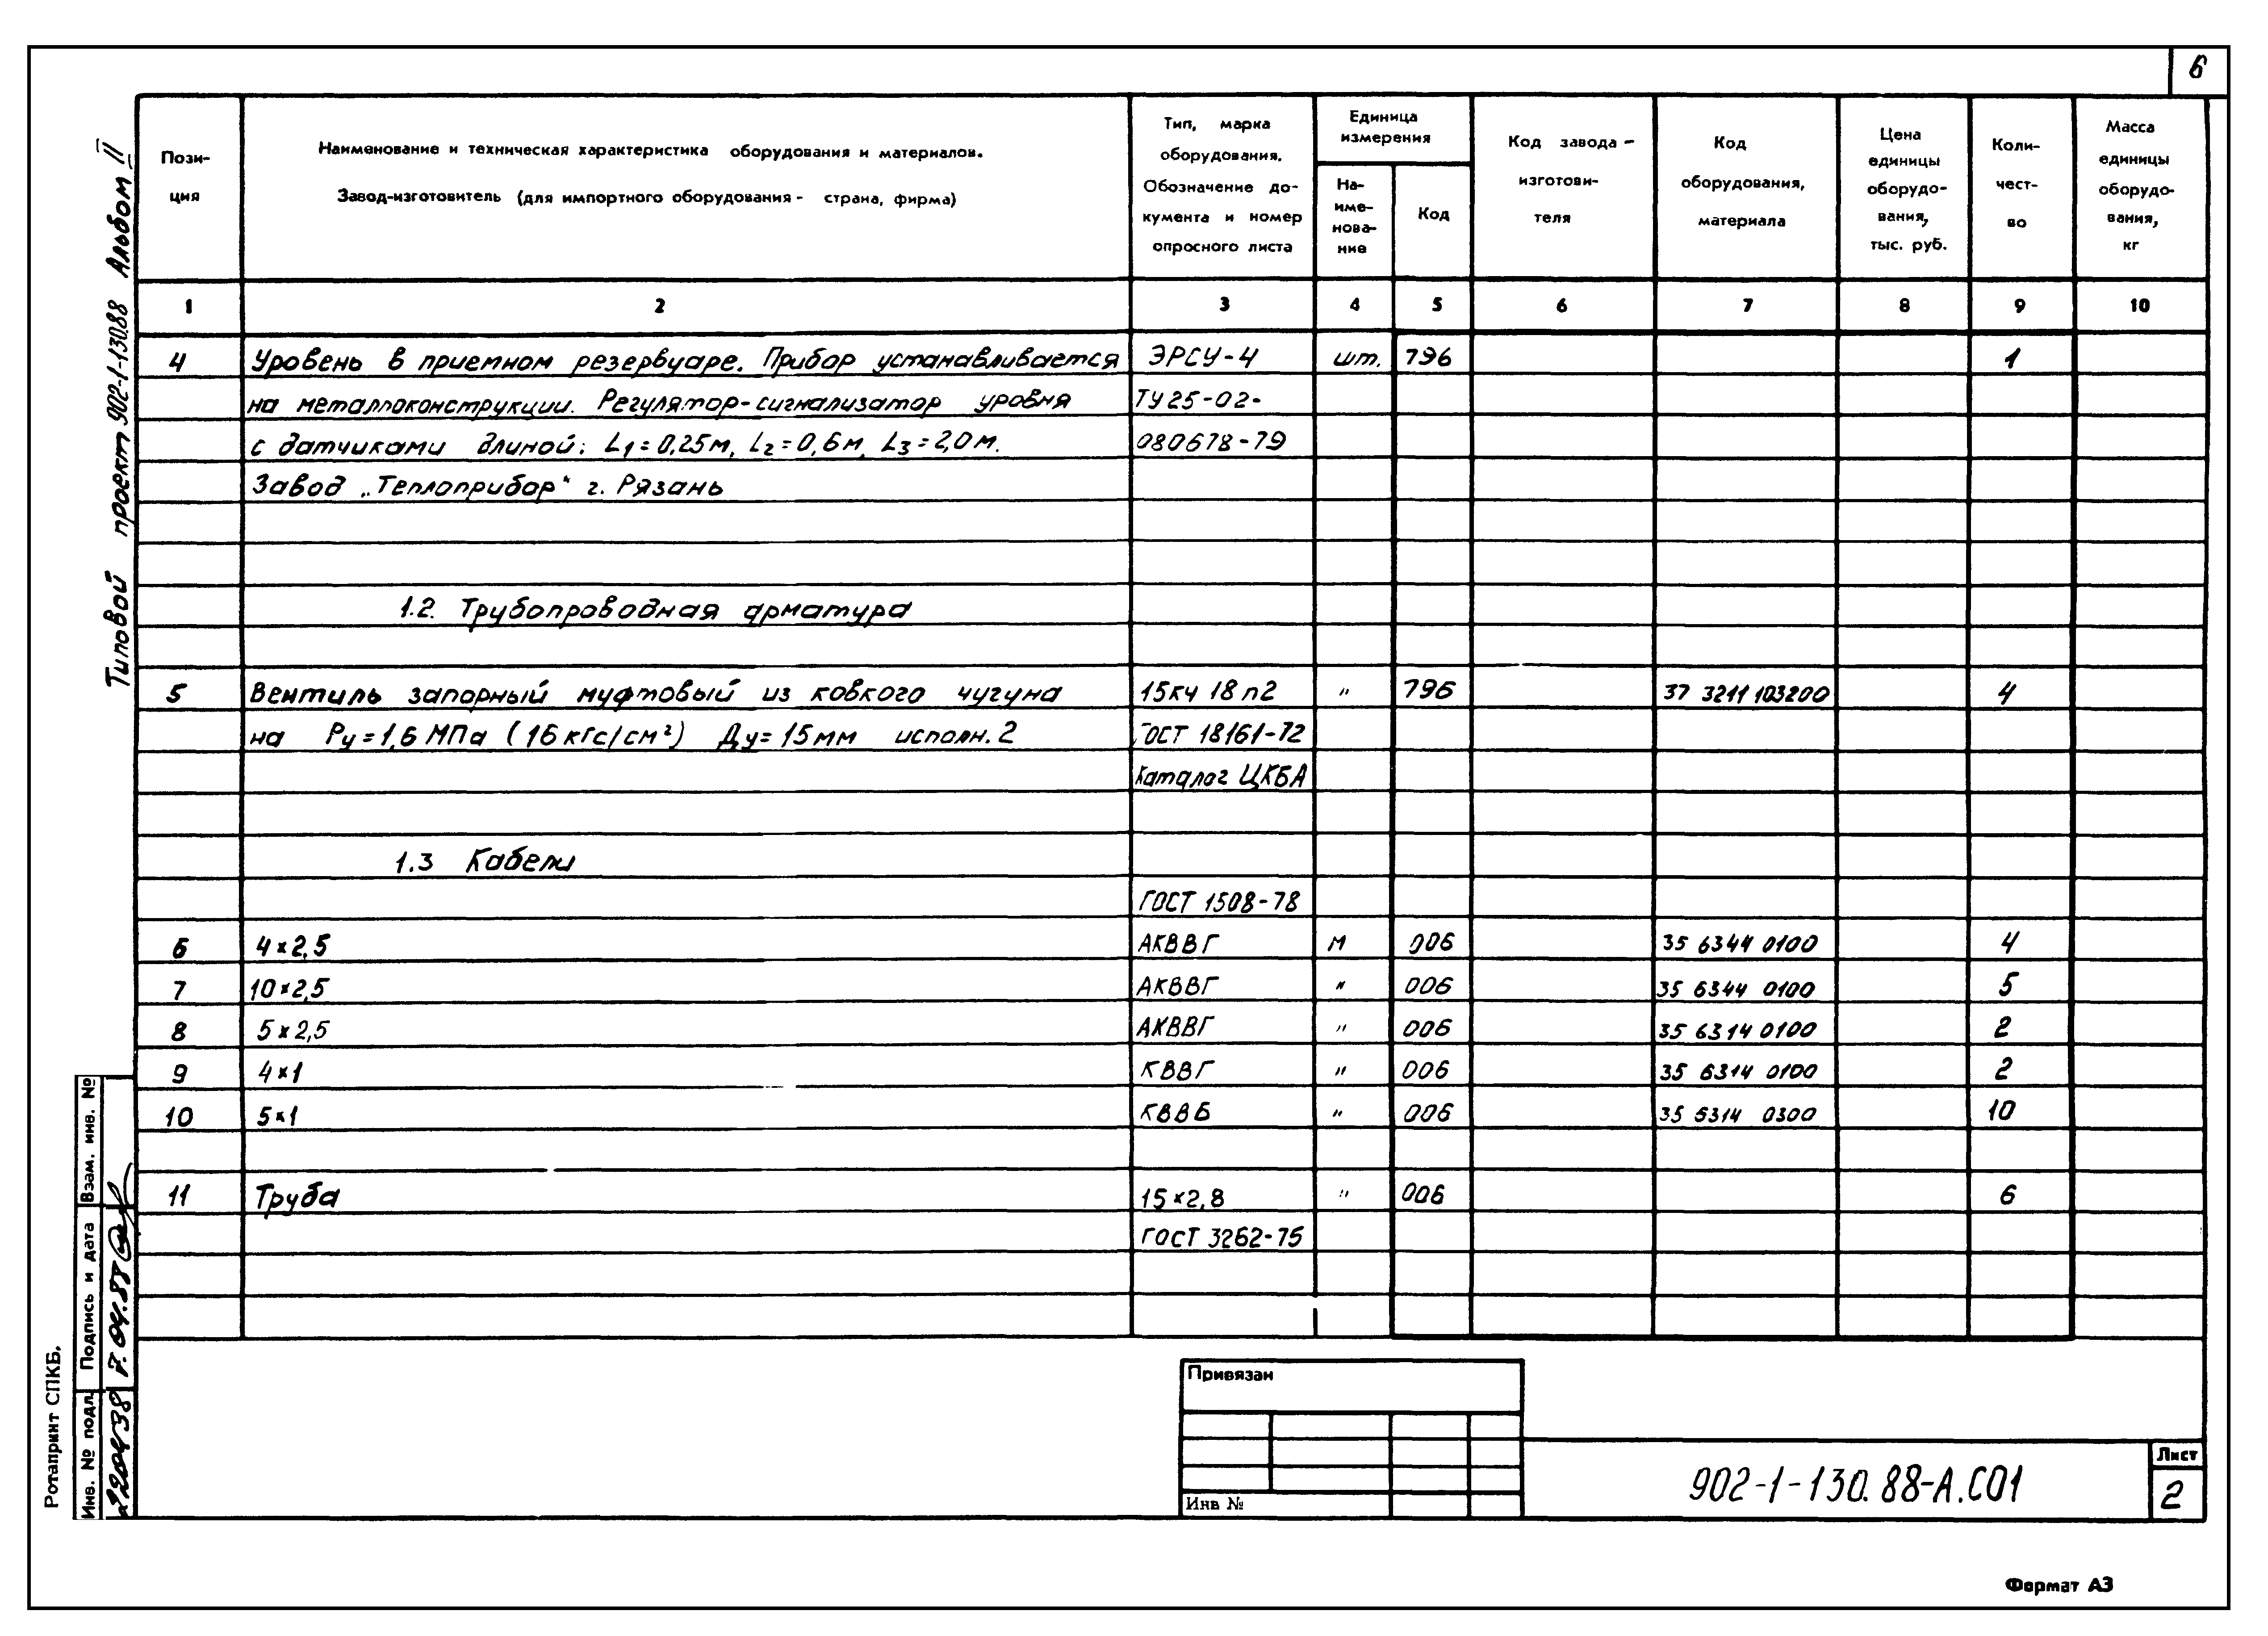 6
Типовой проект 902-1-130.88 Альбом II
Пози-
ция
Наименование и техническая характеристика оборудования и материалов.
Завод-изготовитель (для импортного оборудования - страна, фирма)
Тип, марка
оборудования.
Обозначение до-
кумента и номер
опросного листа
Единица
измерения
На-
име-
нова-
ние
Код
Код завода -
изготови-
теля
Код
оборудования,
материала
Цена
единицы
оборудо-
вания,
тыс. руб.
Коли-
чест-
во
Масса
единицы
оборудо-
вания,
кг
1 2 3 4 5 6 7 8 9 10
4 Уровень в приемном резервуаре. Прибор устанавливается ЭРСУ-4 шт. 796 1
на металлоконструкции. Регулятор-сигнализатор уровня ТУ25-02-
с датчиками длиной: L1=0,25м, L2=0,6м, L3=2,0м. 080678-79
Завод „Теплоприбор“ г. Рязань
1.2. Трубопроводная арматура
5 Вентиль запорный муфтовый из ковкого чугуна 15кч 18п2 " 796 37 3211 103200 4
на Ру=1,6 МПа (16 кгс/см²) Ду=15мм исполн. 2 ГОСТ 18161-72
Каталог ЦКБА
1.3 Кабели
ГОСТ 1508-78
6 4×2,5 АКВВГ М 006 35 6344 0100 4
7 10×2,5 АКВВГ " 006 35 6344 0100 5
8 5×2,5 АКВВГ " 006 35 6314 0100 2
9 4×1 КВВГ " 006 35 6314 0100 2
10 5×1 КВВБ " 006 35 5314 0300 10
11 Труба 15×2,8 " 006 6
ГОСТ 3262-75
Взам. инв. №
Подпись и дата
7.04.88
Инв. № подл.
Ротапринт СПКБ.
Привязан
Инв №
902-1-130.88-А.СО1
Лист
2
Формат А3